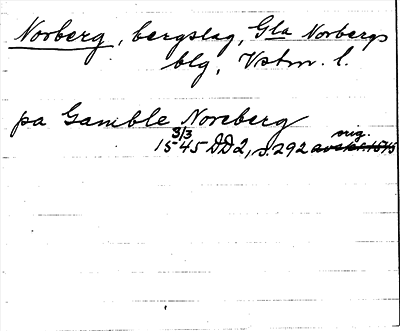 Norberg, bergslag, Gla Norbergs
blg, Vstm. l.
pa Gamble Noreberg
3/3 orig.
1545 DD2, s. 292 avskr. 1545